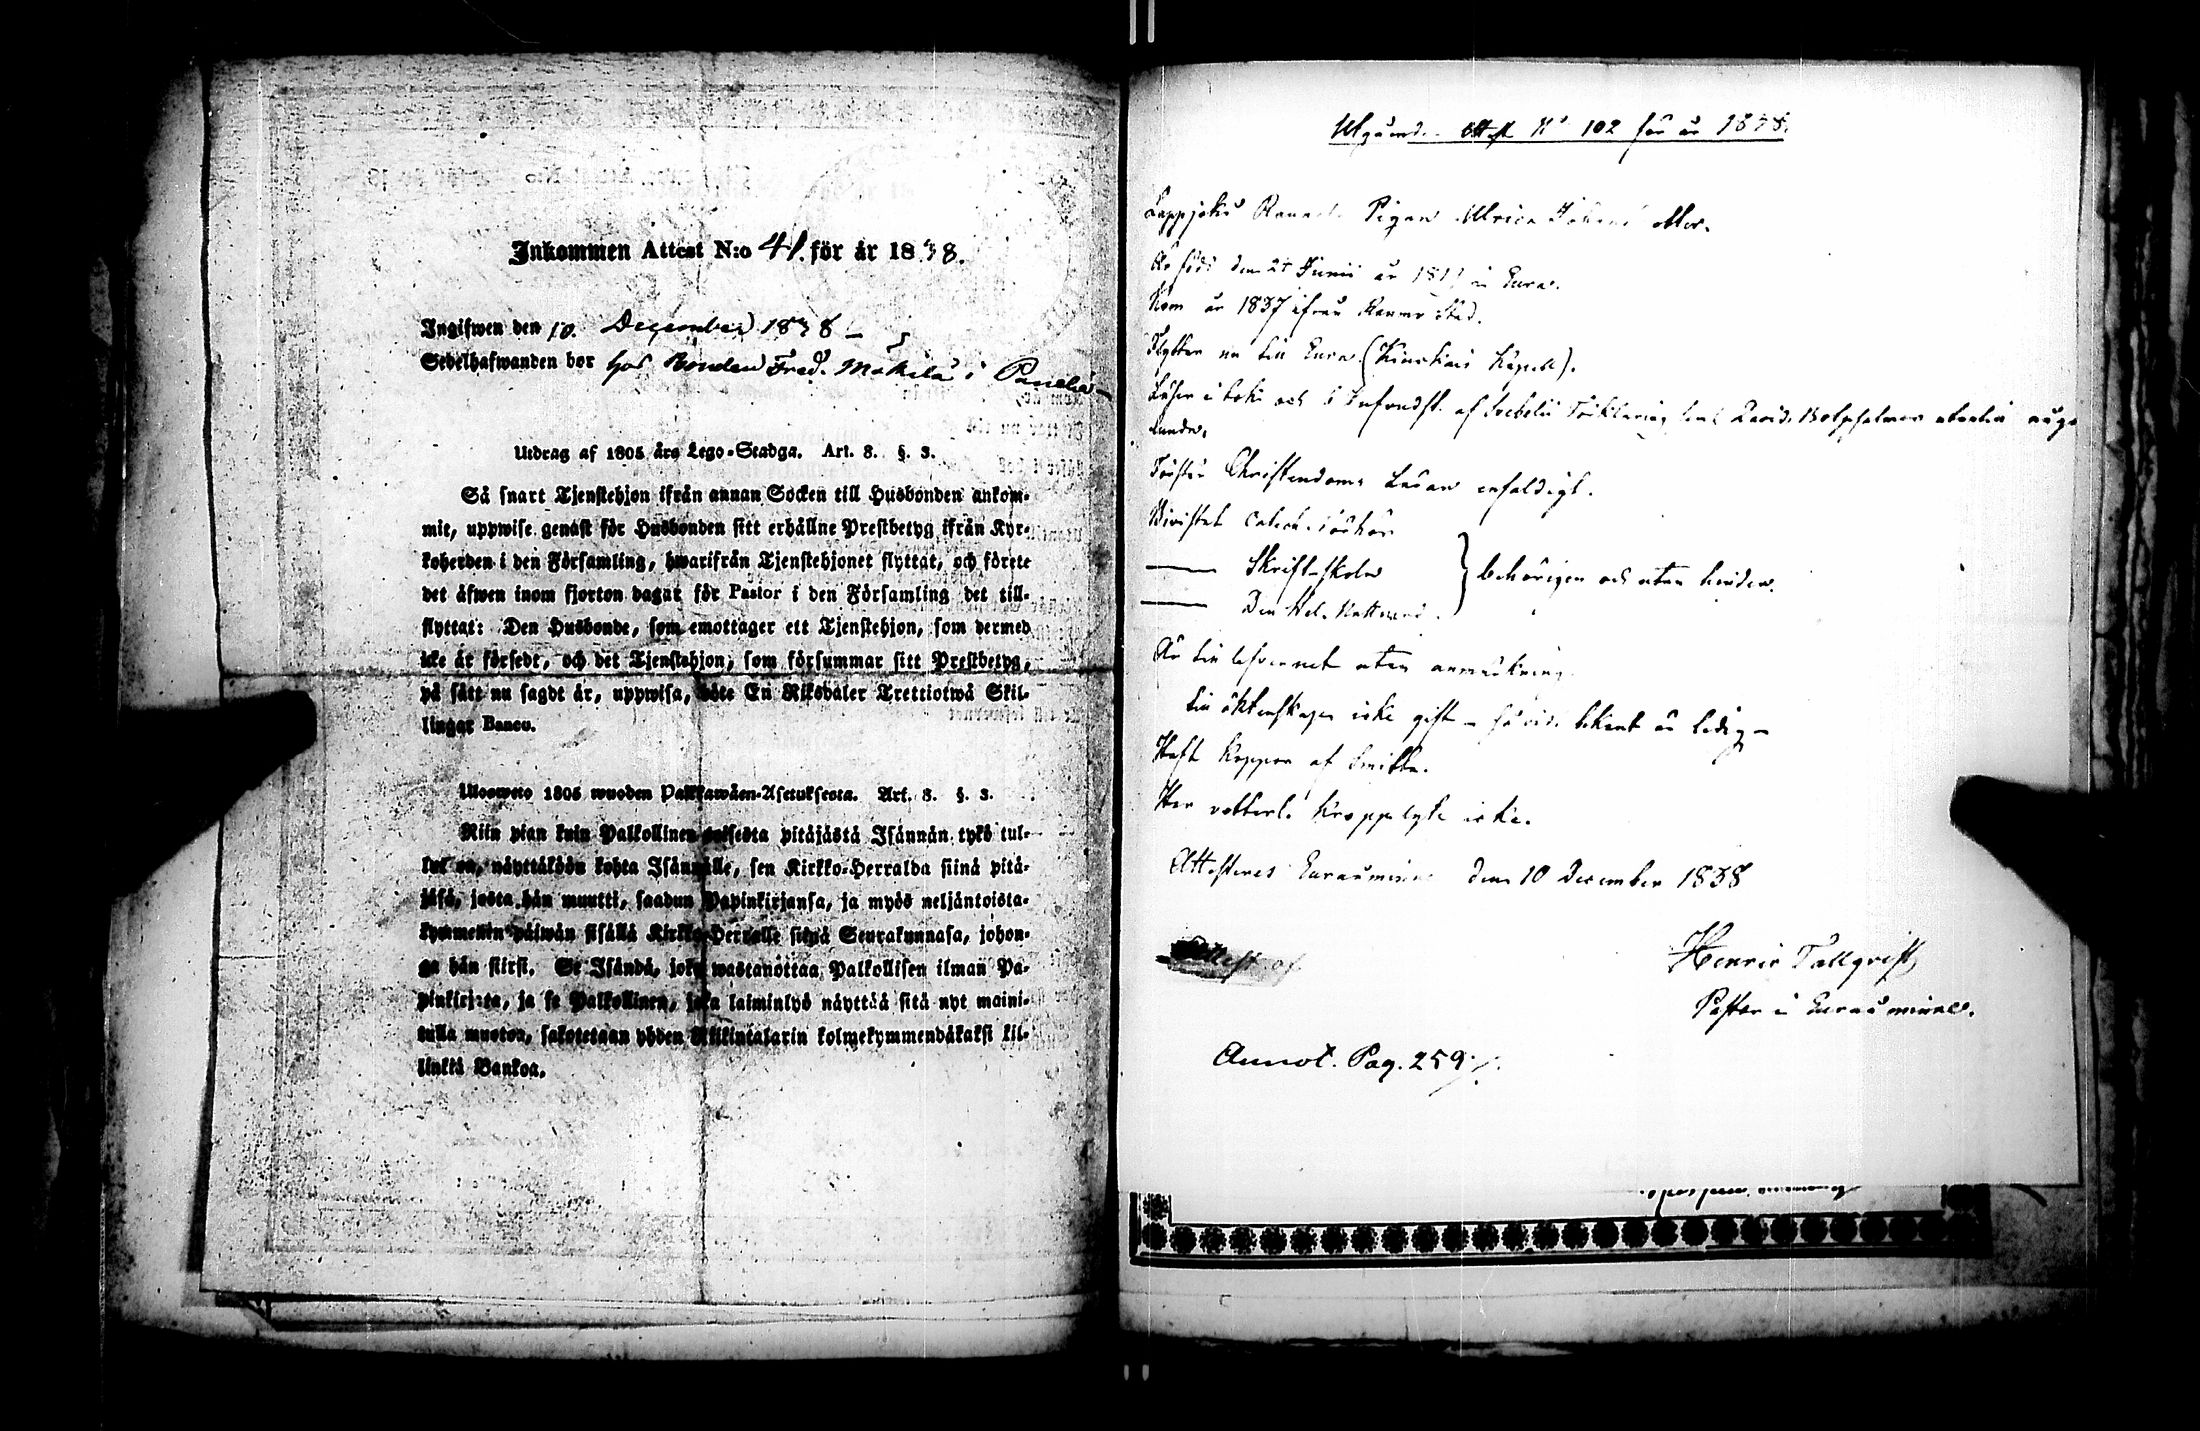 Inkommen Attest N:o 41. för år 1838.
Ingifwen den 10. December 1838
Sedelhafwanden bor hos Bonden Fred. Mäkilä i Panelia
Utdrag af 1805 års Lego-Stadga. Art. 8. §. 3.
Så snart Tjenstehjon ifrån annan Socken till Husbonden ankom-
mit, uppwise genast för Husbonden sitt erhållne Prestbetyg ifrån Kyr-
koherden i den Församling, hwarifrån Tjenstehjonet flyttat, och förete
det äfwen inom fjorton dagar för Pastor i den Församling det till-
flyttat: Den Husbonde, som emottager ett Tjenstehjon, som dermed
icke är försedt, och det Tjenstehjon, som försummar sitt Prestbetyg,
på sätt nu sagdt är, uppwisa, böte En Riksdaler Trettiotwå Skil-
lingar Banco.
Uloswето 1805 wuoden Palkkawäen-Asetuksesta. Art. 8. §. 3.
Niin pian kuin Palkollinen toisesta pitäjästä Isännän tykö tul-
lut on, näyttäköön kohta Isännälle, sen Kirkko-Herralda siinä pitä-
jäsä, josta hän muutti, saadun Papinkirjansa, ja myös neljäntoista-
kymmenin päiwän sisällä Kirkko-Herralle siinä Seurakunnasa, johon-
ga hän siirsi. Se Isändä, joka wastanottaa Palkollisen ilman Pa-
pinkirjata, ja se Palkollinen, joka laiminlyö näyttää sitä nyt maini-
tulla muoton, sakotetaan yhden Riikintalarin kolmekymmendäkaksi kil-
linkiä Bankoa.
Utgående Attest N:o 102 för år 1838.
Lappjoki Pigan Ulrica
Är född den 21 Junii år i Eura.
Kom år 1837 ifrån Raumo Stad.
Flyttar nu till Eura (Kiukais Kapell).
Läser i bok och af Svebelii Förklaring samt David. Botpsalmer utantill
lunda.
Förstår Christendoms Läran enfaldigt.
Bivistat Catech. Förhör
Skriftskolan
Den Hel. Nattvard } behörigen och utan hinder.
Är till lefvernet utan anmärkning
till äktenskapet icke gift – så vidt bekant är ledig –
Haft Koppor af Smitta.
Har vetterl. Kroppslyte icke.
Attesteras Euraåminne den 10 December 1838
Henric Tallqvist
Pastor i Euraåminne.
Annot. Pag. 259